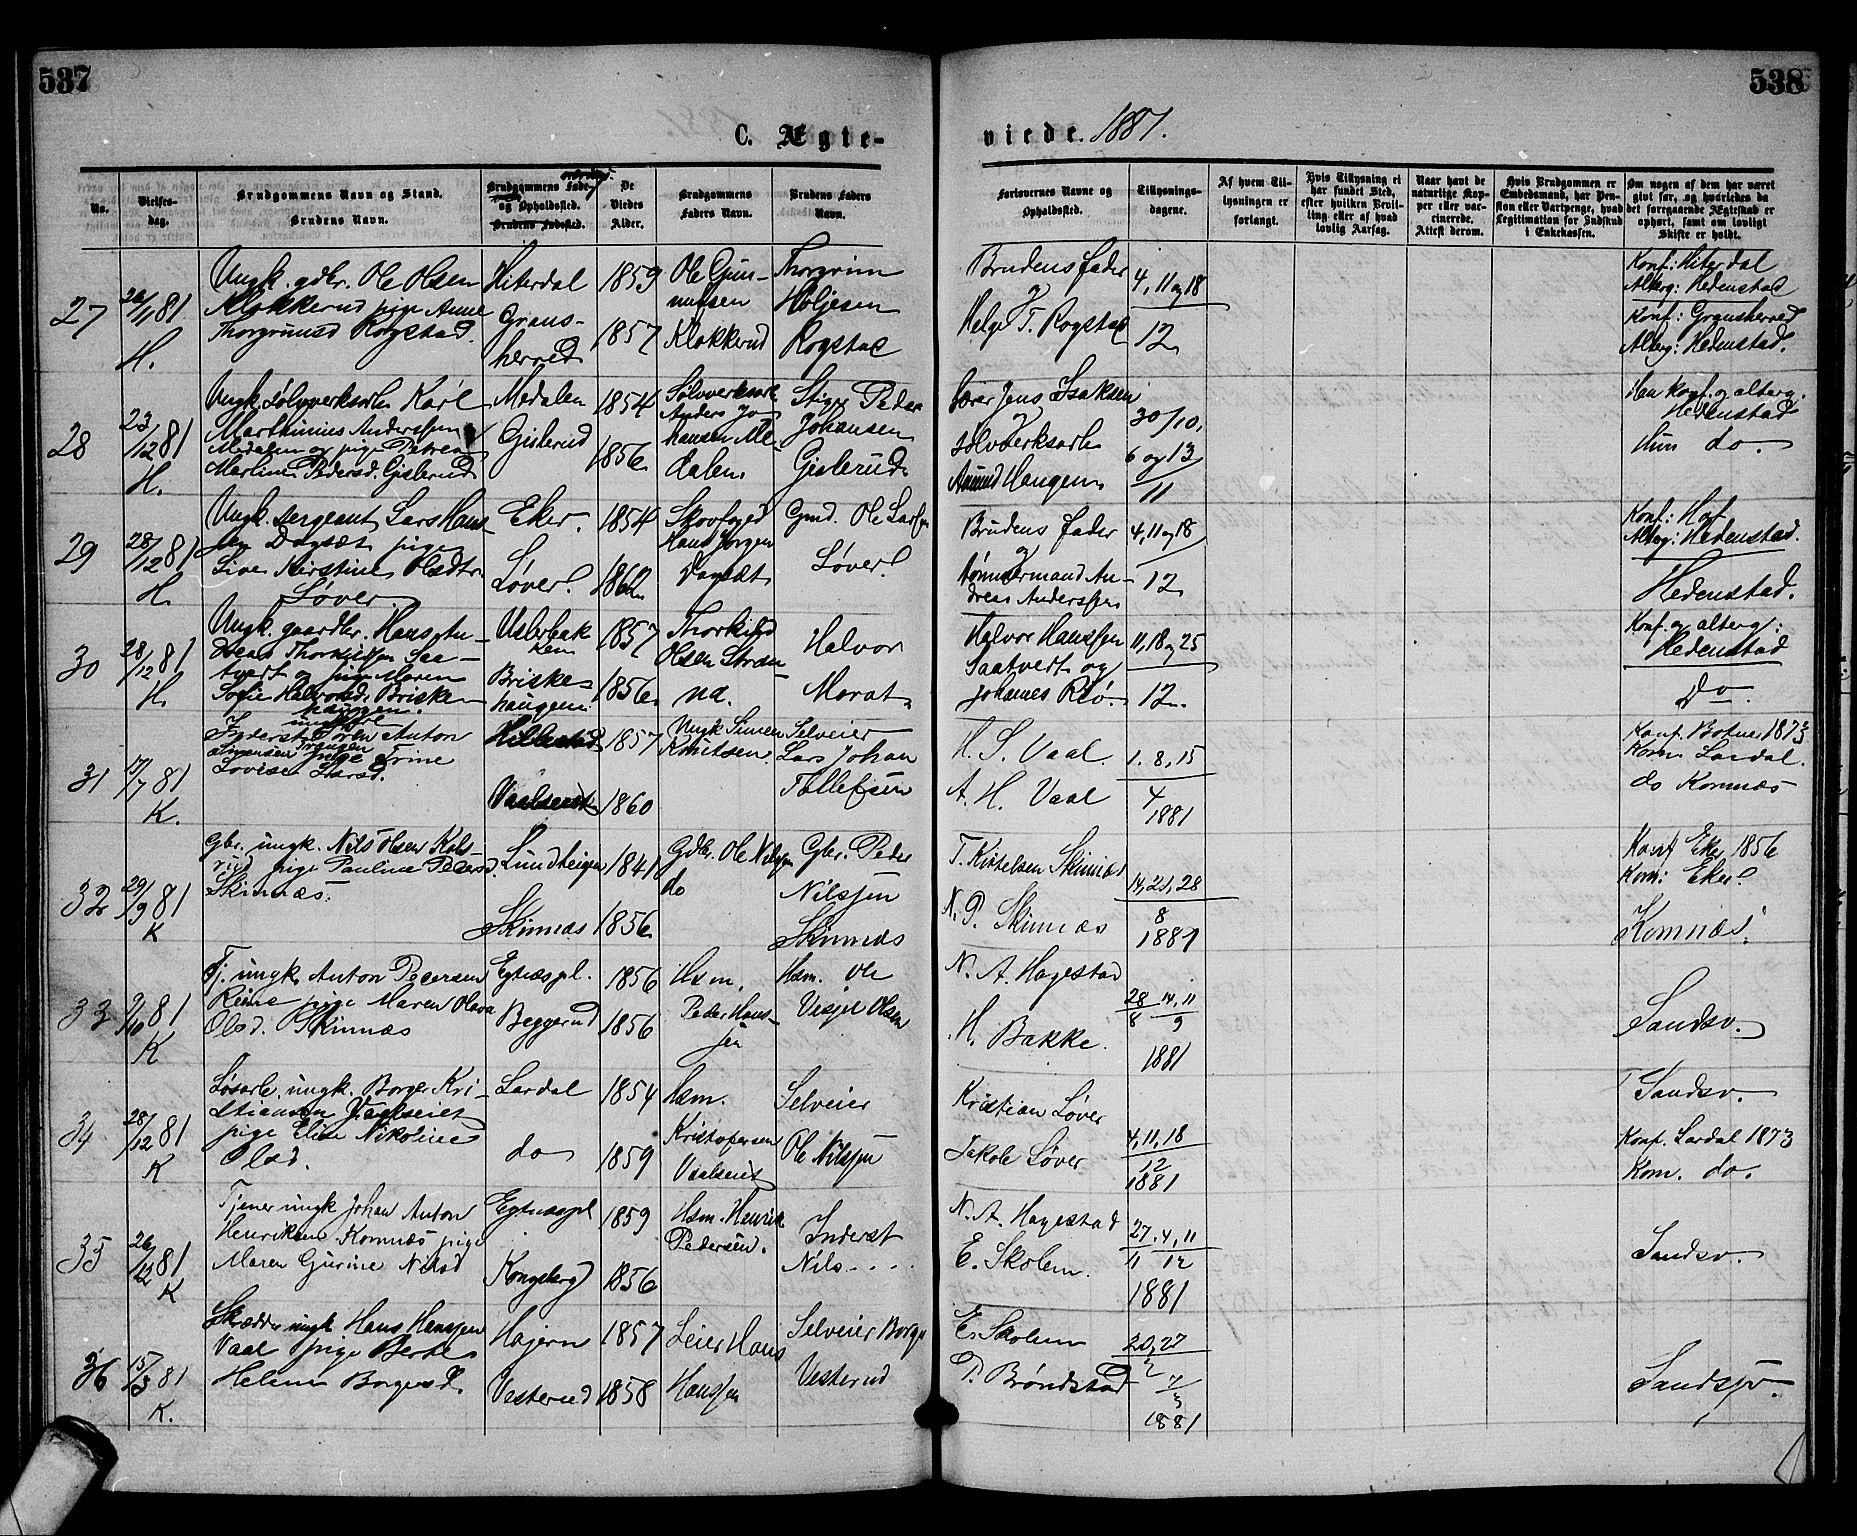 537
538
C. Ægte-
viede. 1881.
No.
Vielses-
dag.
Brudgommens Navn og Stand.
Brudens Navn.
Brudgommens Føde-
og Opholdssted.
Brudens Fødested.
De
Viedes
Alder.
Brudgommens
Faders Navn.
Brudens Faders
Navn.
Forlovernes Navne og
Opholdssted.
Tillysnings-
dagene.
Af hvem Til-
lysningen er
forlangt.
Hvis Tillysning ei
har fundet Sted,
efter hvilken Bevil-
ling eller af hvad
lovlig Aarsag.
Naar havt de
naturlige Kop-
per eller vac-
cinerede.
Attest derom.
Hvis Brudgommen er
Embedsmand, har Pen-
sion eller Vartpenge, hvad
Legitimation for Indskud
i Enkekassen.
Om nogen af dem har været
gift før, og hvorledes da
det foregaaende Ægteskab er
ophørt, samt om lovligt
Skifte er holdt.
27
26/1 81
H.
Ungk. gdbr. Ole Olsen
Klokkerud pige Anne
Thorgrimsd Rogstad.
Hiterdal
Grans-
herred
1859
1857
Ole Gun-
nufsen
Klokkerud
Thorgrim
Holjesen
Rogstad
Brudens fader
og
Helge T. Rogstad
4, 11 og 18
12
Konf: Hiterdal
Altberg: Hedenstad
Konf: Gransherred
Altberg: Hedenstad.
28
23/12 81
H.
Ungk. sølvverksarb. Karl
Marthinius Anderssen
Medalen og pige Petrea
Marline Pedersd. Gislerud
Medalen
Gislerud
1854
1856
Sølvverksarb.
Anders Jo-
hansen Me-
dalen
Stiger Peder
Johansen
Gislerud
Lærer Jens Isaksen
og
sølvverksarb.
Amund Haugen
30/10,
6 og 13
11
Han konf. og altberg.
Hedenstad
Hun do.
29
28/12 81
H.
Ungk. sergeant Lars Hans-
sen Dagsæt pige
Live Kirstine Olsdtr.
Løver
Eker.
Løver.
1854
1862
Skovfoged
Hans Jørgen
Dagsæt
Gmd. Ole Larssen
Løver.
Brudens fader
og
tømmermand An-
dreas Anderssen
4, 11 og 18
12
Konf: Hof
Altbg: Hedenstad.
Hedenstad.
30
28/12 81
H.
Ungk. gaardbr. Hans An-
dreas Thorkilssen Saa-
tvert og pige Maren
Sofie Halvorsd. Briske-
haugen.
Uslerbak
ken
Briske-
haugen.
1857
1856
Thorkild
Olsen Stran-
na.
Halvor
Morat
Halvor Hanssen
Saatvert og
Johannes Rlø.
11, 18 og 25
12.
Konf. og altberg:
Hedenstad
Do
31
17/7 81
K.
Inderst Søren Anton
Simensen pige Trine
Lovise Larsd.
Hillestad
Vaalseiet
1857
1860
Ungk Simen
Knutsen.
Selveier
Lars Johan
Tollefsen
H. S. Vaal
A. H. Vaal
1. 8, 15
4
1881
Konf. Botne 1873
Kom. Lardal.
do Komnæs
32
29/9 81
K
Gbr. ungk. Nils Olsen Kols-
rud pige Pauline Pedersd.
Skinnæs.
Lundteigen
Skinnæs
1841
1856
Gdbr. Ole Nilssen
do
Gbr. Peder
Nilssen
Skinnæs
T. Kittelsen Skinnæs
N. P. Skinnæs
14, 21, 28
8
1881
Konf Eker 1856
Kom: Eker.
Komnæs
33
9/10 81
K
Tj. ungk. Anton Pedersen
Rime pige Maren Olava
Olsd. Skinnæs
Egtnæspl.
Beggerud
1856
1856
Hsm.
Peder Hans-
sen
Hsm. Ole
Vesjel Olsen
N. A. Hagestad
H. Bakke.
28 14, 11
8 9
1881
Sandsv.
34
28/12 81
K
Løsarb. ungk. Borger Kri-
stiansen Vaalseiet
pige Elise Nikoline
Olsd.
Lardal
do
1854
1859
Hsm.
Kristofersen
Vaalseiet
Selveier
Ole Nilssen
Kristian Løver
Jakob Løver
4, 11, 18
12
1881
Sandsv.
Konf. Lardal 1873
Kom. do.
35
26/12 81
K
Tjener ungk Johan Anton
Henriksen Komnæs pige
Maren Gurine Nilsd
Egtnæspl
Kongsberg
1859
1856
Hsm. Henrik
Pedersen.
Inderst
Nils....
N. A. Hagestad
E. Skolem.
27. 4, 11
11 12
1881
Sandsv.
36
15/3 81
K.
Skrædder ungk Hans Hanssen
Vaal pige Berte
Helene Borgesd.
Hajern
Vesterud
1857
1858
Leier Hans
Hanssen
Selveier Borge
Vesterud
E. Skolem
P. Brøndstad
20, 27
2
7/3
1881
Sandsv.